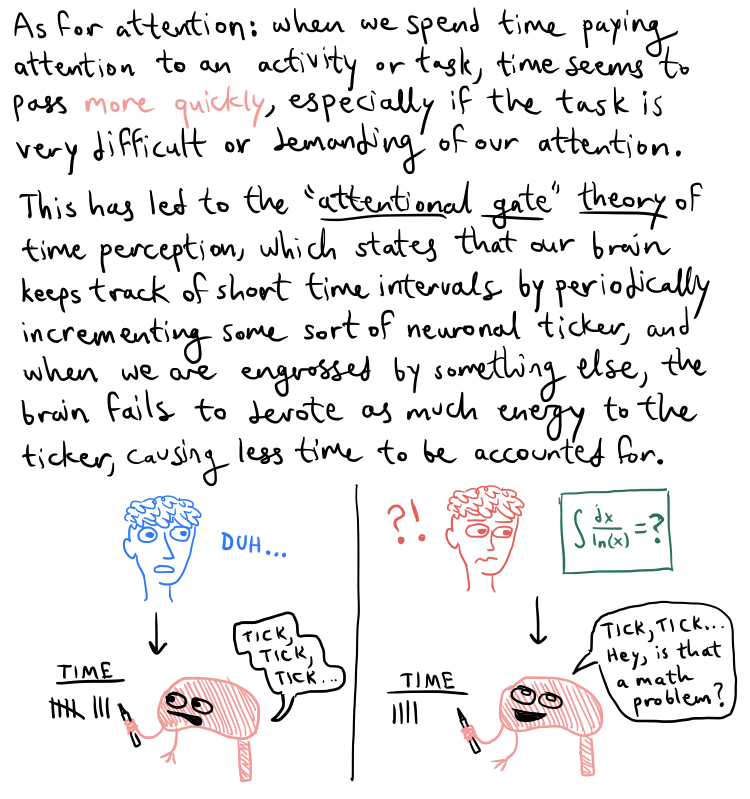 As for attention: when we spend time paying
attention to an activity or task, time seems to
pass more quickly, especially if the task is
very difficult or demanding of our attention.
This has led to the "attentional gate" theory of
time perception, which states that our brain
keeps track of short time intervals by periodically
incrementing some sort of neuronal ticker, and
when we are engrossed by something else, the
brain fails to devote as much energy to the
ticker, causing less time to be accounted for.
DUH...
TIME
TICK,
TICK,
TICK...
?!
∫ dx/ln(x) = ?
TIME
TICK, TICK...
Hey, is that
a math
problem?